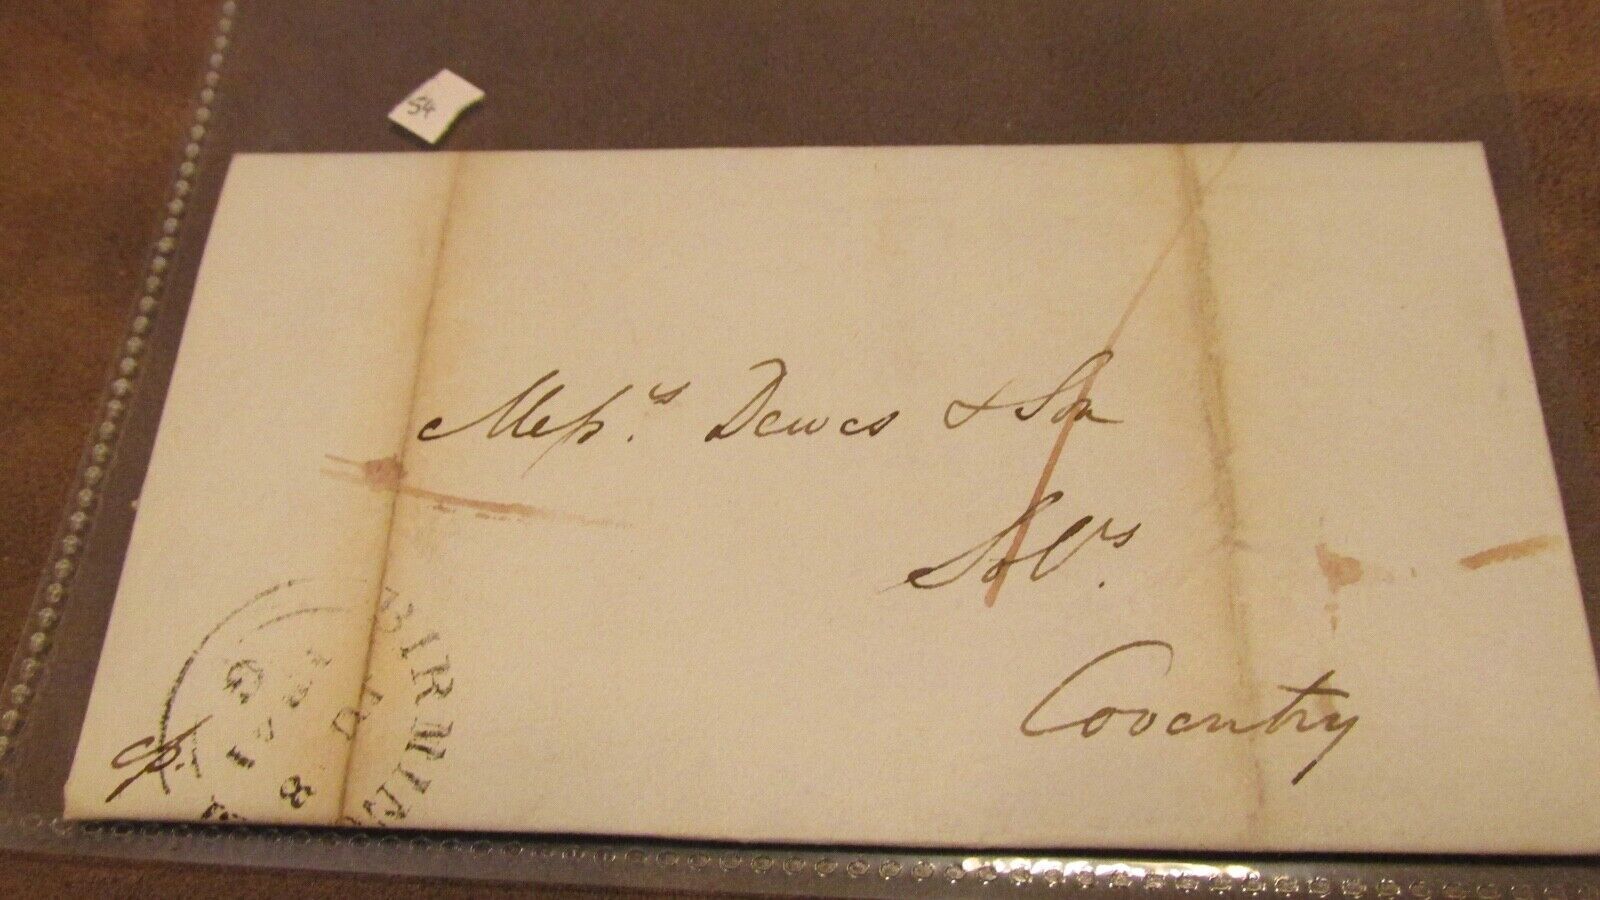 54
Messrs. Dewes & Son
Solrs.
Coventry
BIRMIN
G
8
p.